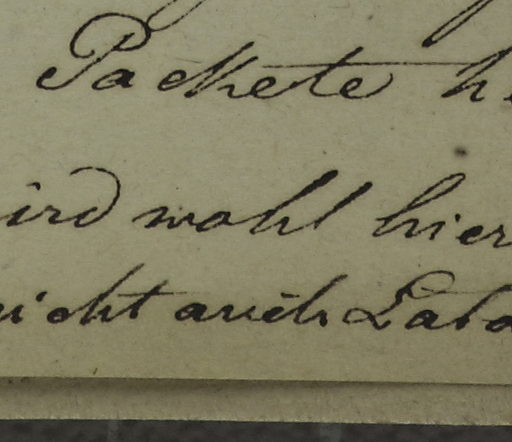 Packete h
ird wohl hier
icht auch